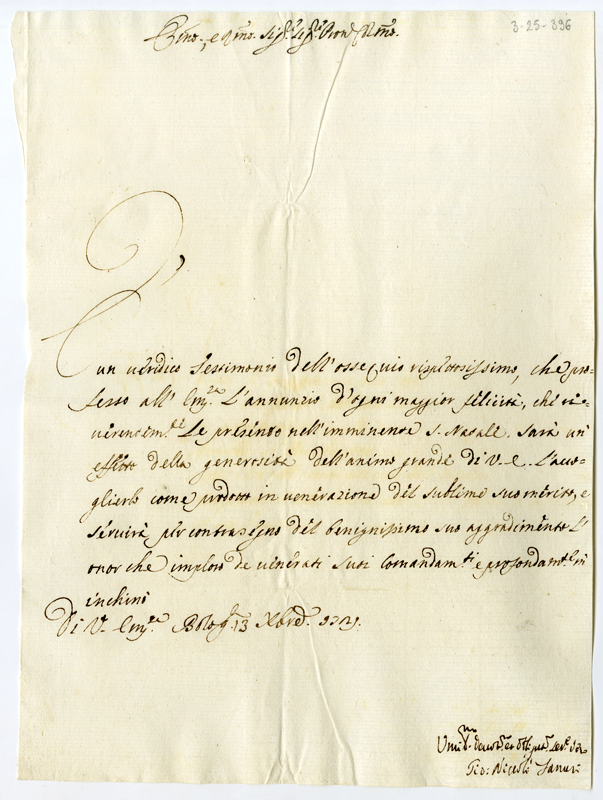 3-25-396
Emo., e Rmo. Sigr. Sigr. Pron. Colmo.
È un veridico testimonio dell'ossequio rispettosissimo, che pro=
fesso all' Emza. L'annunzio d'ogni maggior felicità, che ri=
verentem.te Le presento nell'imminente S. Natale. Sarà un
effetto della generosità dell'animo grande di V. E. L'acco=
glierlo come prodotto in venerazione del sublime suo merito, e
servirà per contrasegno del benignissimo suo aggradimento L'
onor che imploro de venerati suoi Comandam.ti e profondam.te m'
inchino
Di V. Emza. Bologa. 13 Xbre. 1721.
Umo. Devotmo. et
Gio: Niccolò Tanari